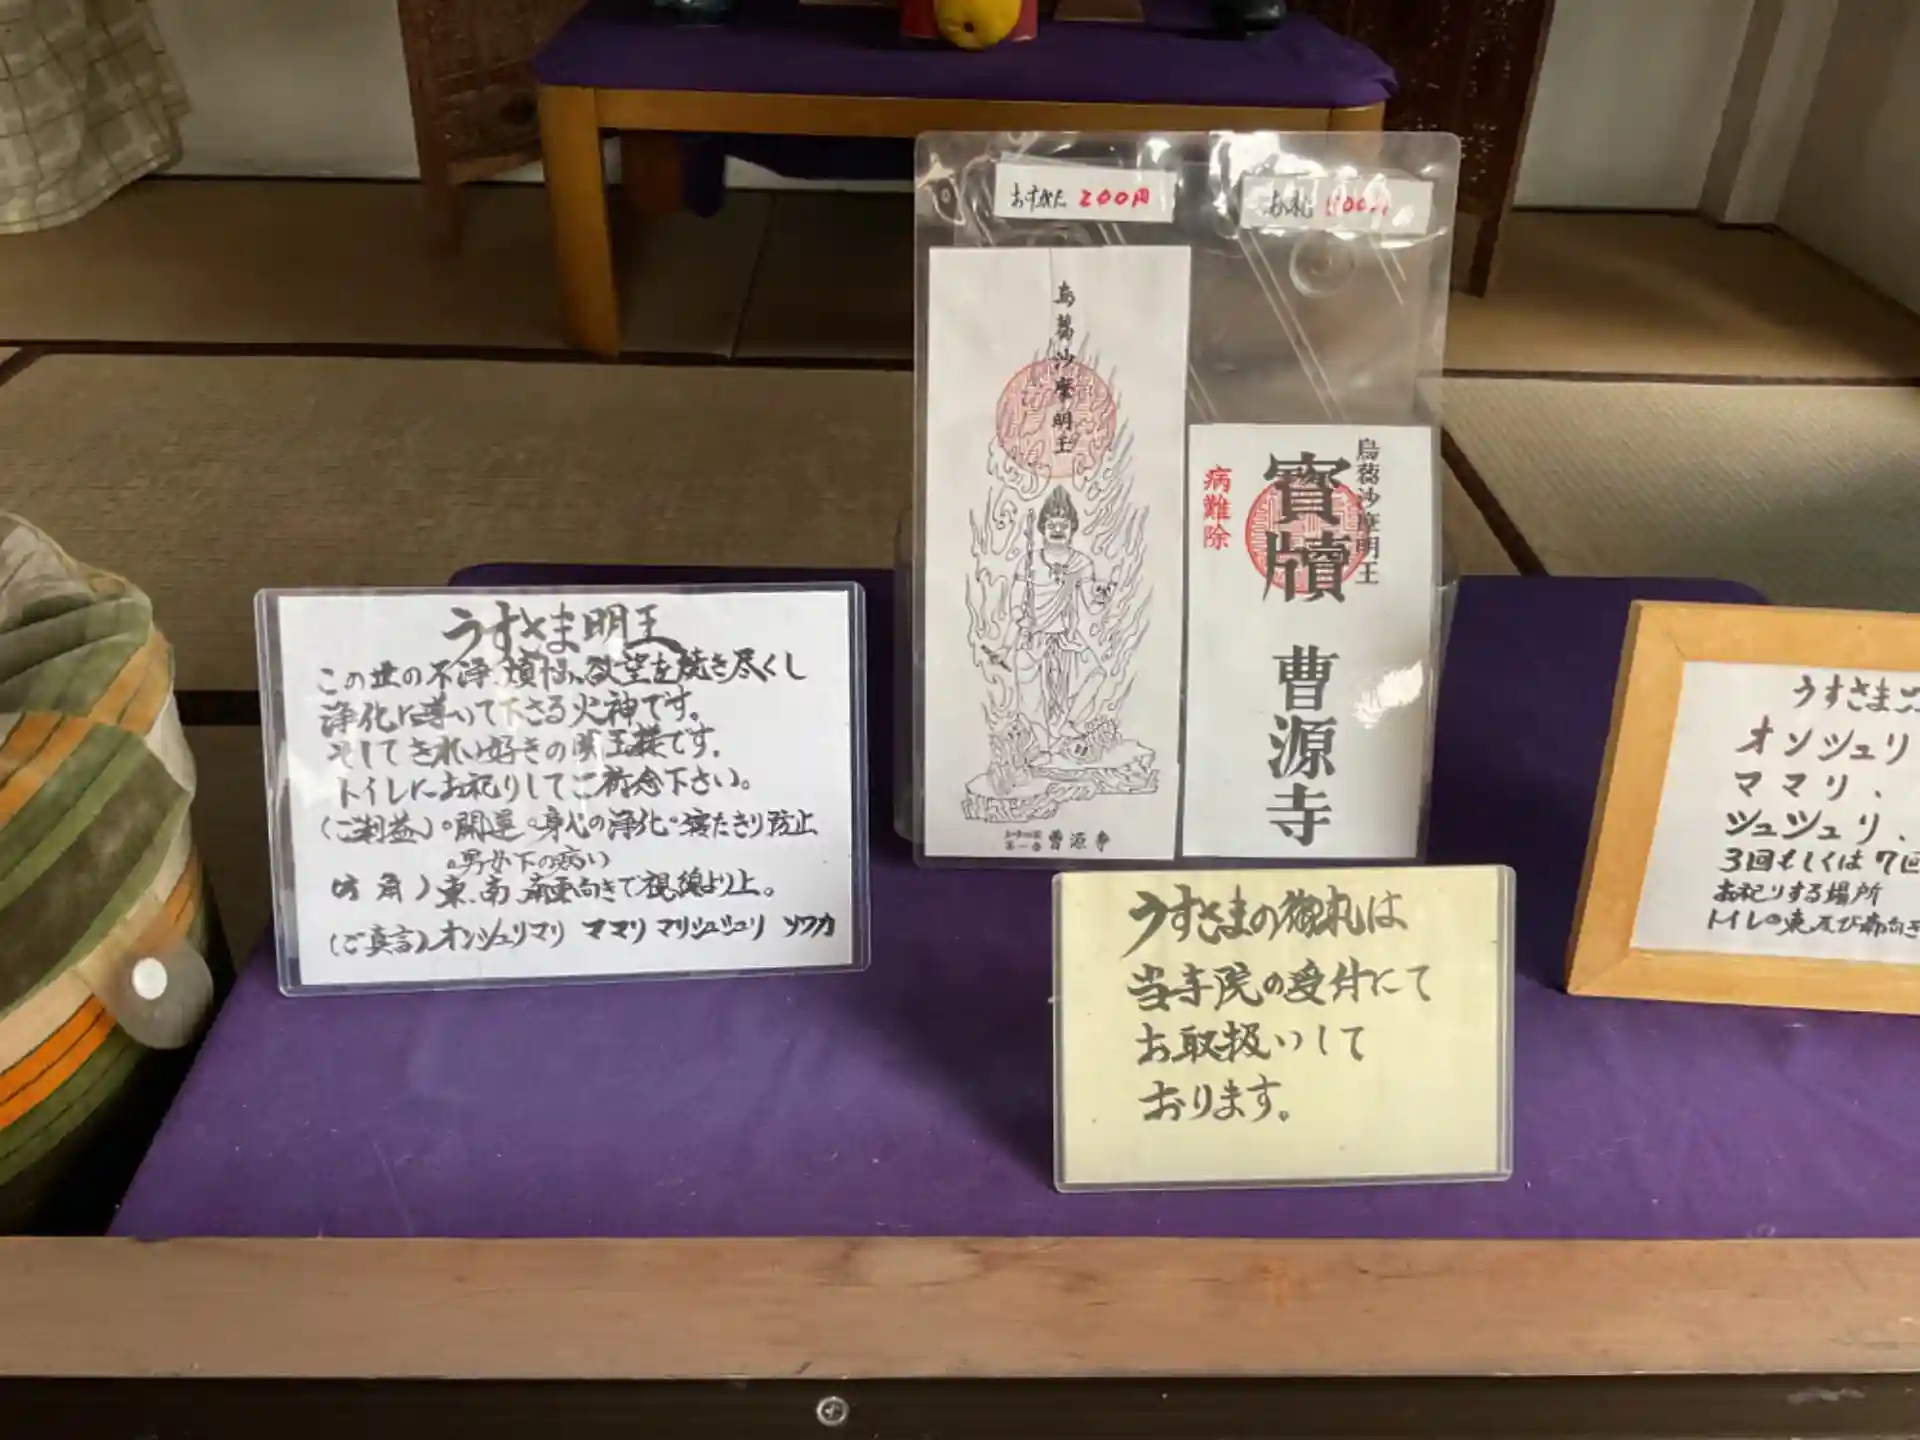 おすがた 200円
お札
烏蒭沙摩明王
第一番 曹源寺
烏蒭沙摩明王
寳牘 曹源寺
病難除
うすさま明王
この世の不浄、煩悩、欲望を焼き尽くし
浄化に導いて下さる火神です。
そしてきれい好きの明王様です。
トイレにお祀りしてご祈念下さい。
(ご利益)。開運。身心の浄化。寝たきり防止
。男女下の病い
方角)東、南、南東向きで視線より上。
(ご真言)オンシュリマリ ママリ マリシュシュリ ソワカ
うすさまの御札は
当寺院の受付にて
お取扱いして
おります。
うすさま
オンシュリ
ママリ、
シュシュリ、
3回もしくは7回
お祀りする場所
トイレの東及び南向き